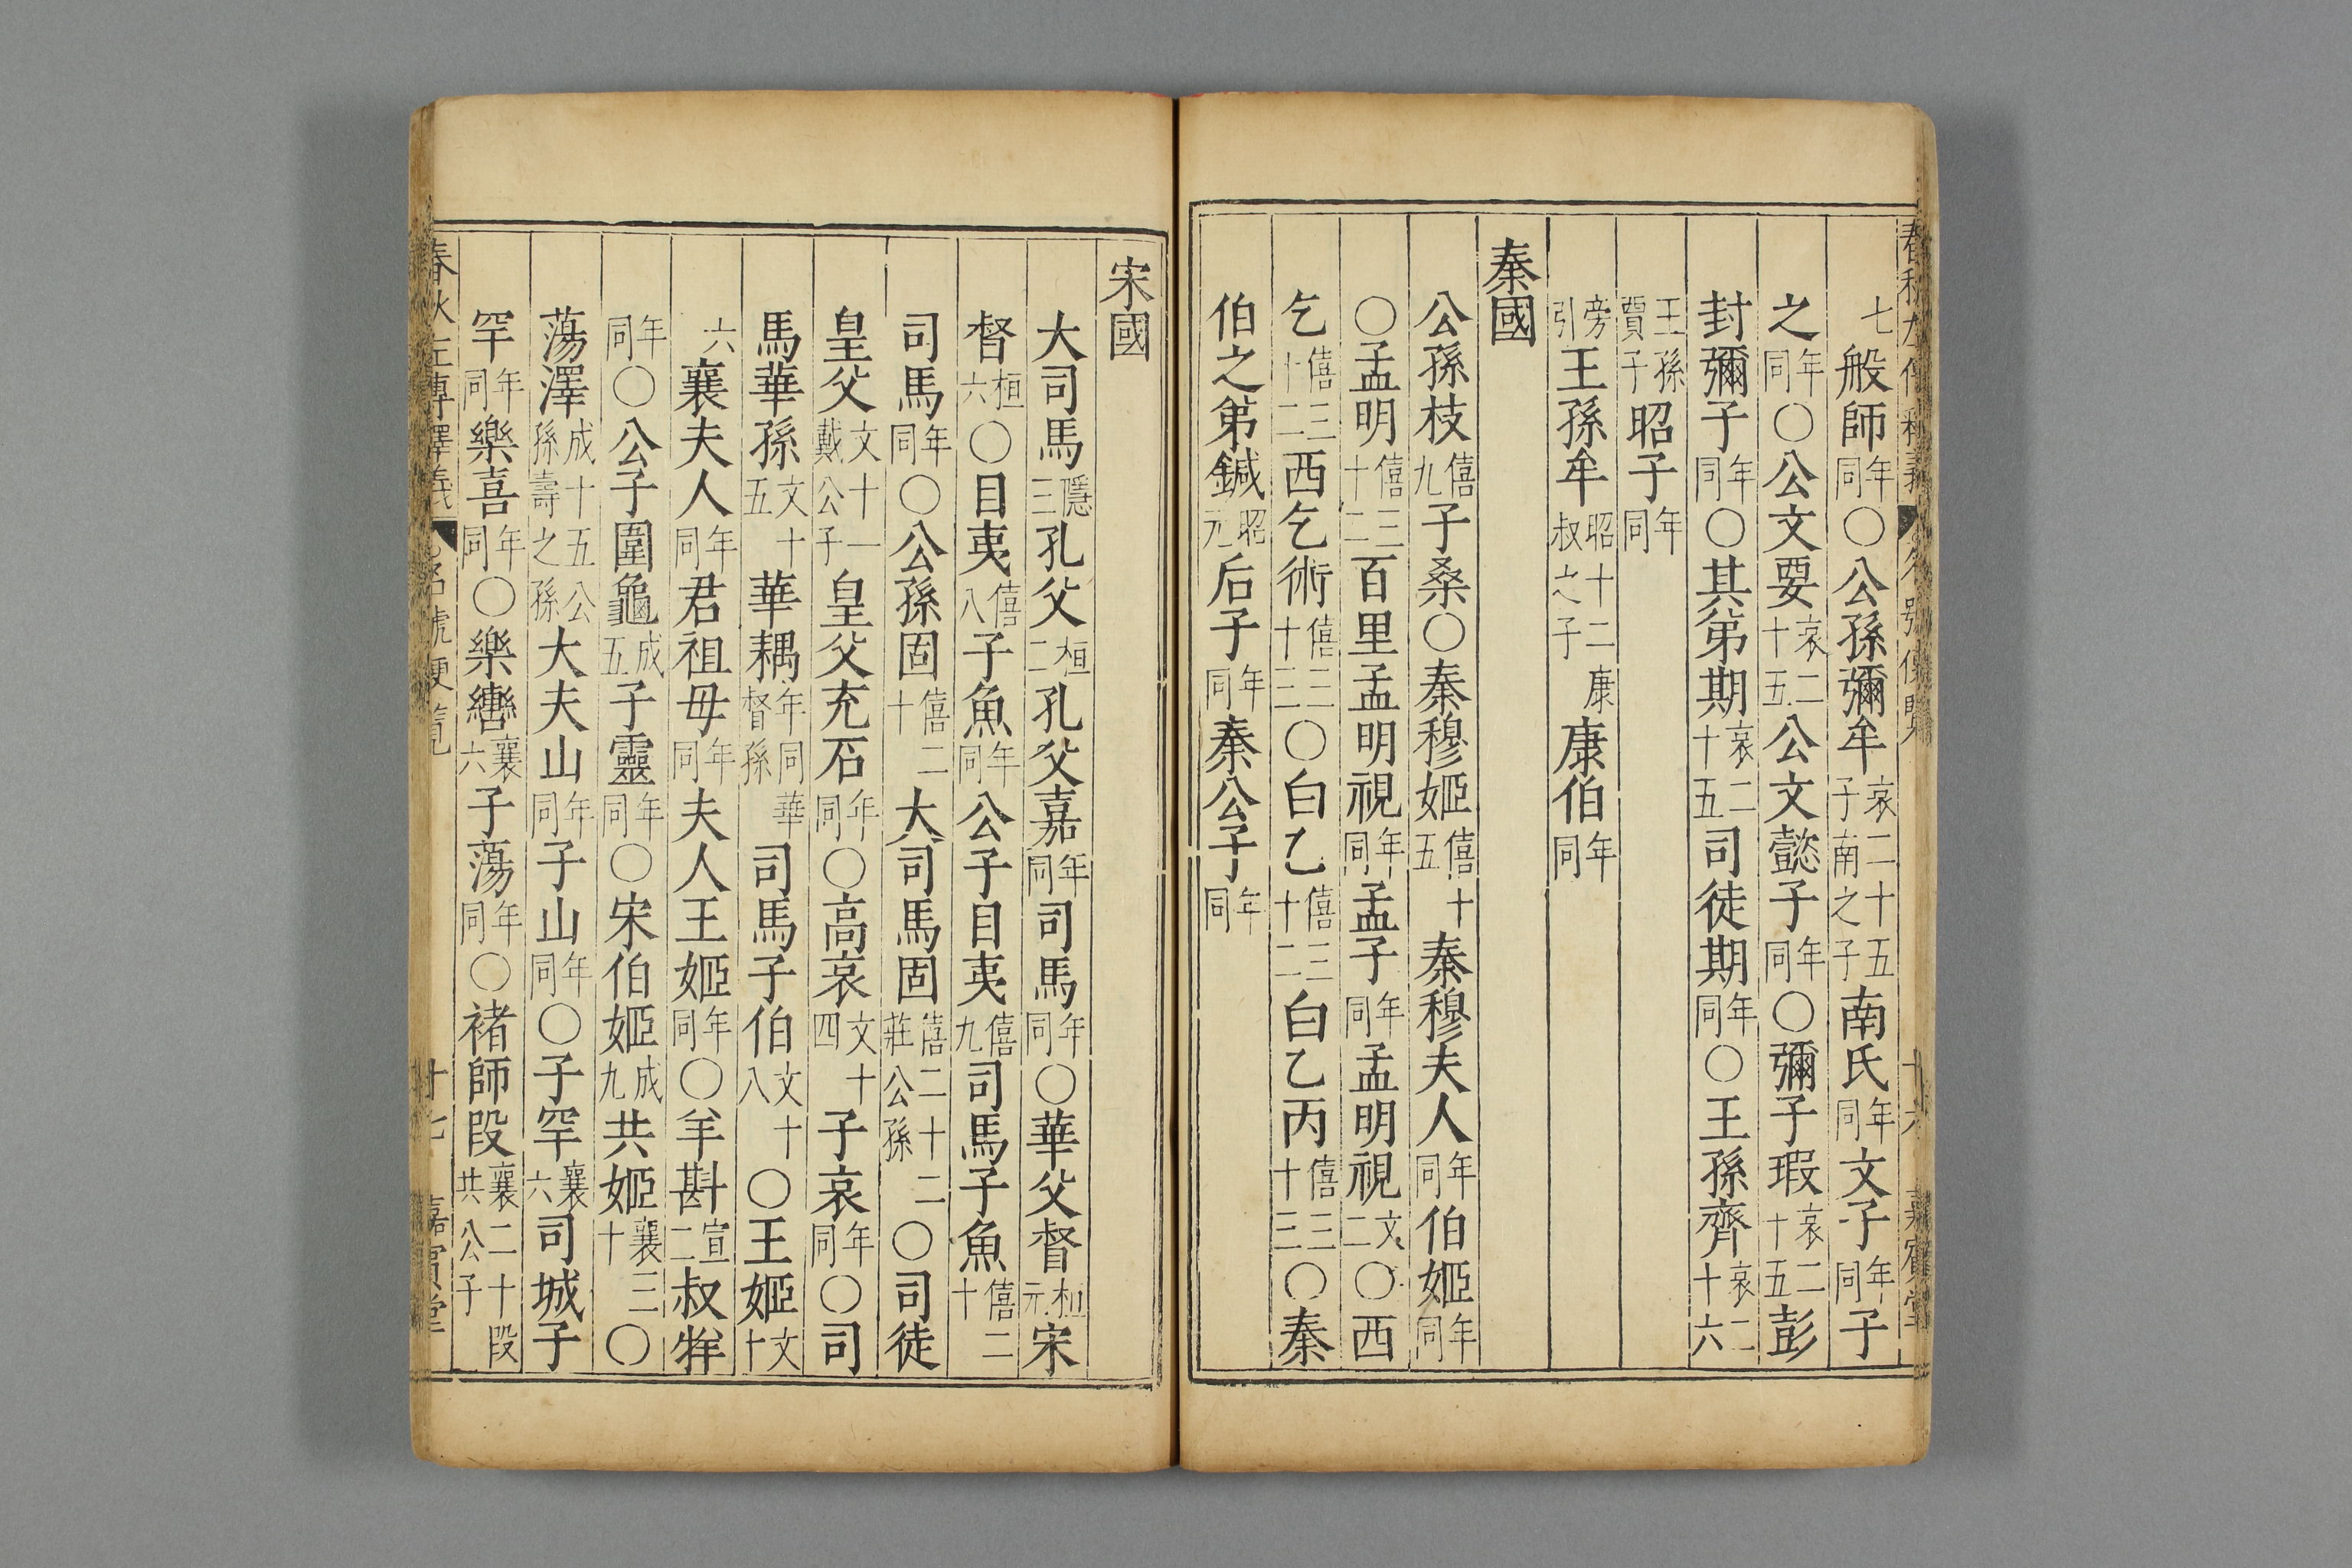 春秋左傳釋義 名號便覽 十六 嘉賓堂
七般師年同〇公孫彌牟哀二十五子南之子南氏年同文子年同子
之年同〇公文要哀二十五公文懿子年同〇彌子瑕哀二十五彭
封彌子年同〇其弟期哀二十五司徒期年同〇王孫齊哀二十六
王孫賈子昭子年同
旁引王孫牟昭十二康叔之子康伯年同
秦國
公孫枝僖九子桑〇秦穆姬僖十五秦穆夫人年同伯姬年同
〇孟明僖三十二百里孟明視年同孟子年同孟明視文二〇西
乞僖三十二西乞術僖三十三〇白乙僖三十二白乙丙僖三十三〇秦
伯之弟鍼昭元后子年同秦公子年同
宋國
大司馬隱三孔父桓二孔父嘉年同司馬年同〇華父督桓元宋
督桓六〇目夷僖八子魚年同公子目夷僖九司馬子魚僖二十
司馬年同〇公孫固僖二十大司馬固僖二十二莊公孫〇司徒
皇父文十一戴公子皇父充石年同〇高哀文十四子哀年同〇司
馬華孫文十五華耦年同華督孫司馬子伯文十八〇王姬文十
六襄夫人年同君祖母年同夫人王姬年同〇羊斟宣二叔牂
年同〇公子圍龜成五子靈年同〇宋伯姬成九共姬襄三十〇
蕩澤成十五公孫壽之孫大夫山年同子山年同〇子罕襄六司城子
罕年同樂喜年同〇樂轡襄六子蕩年同〇褚師段襄二十段共公子
春秋左傳釋義 名號便覽 十七 嘉賓堂